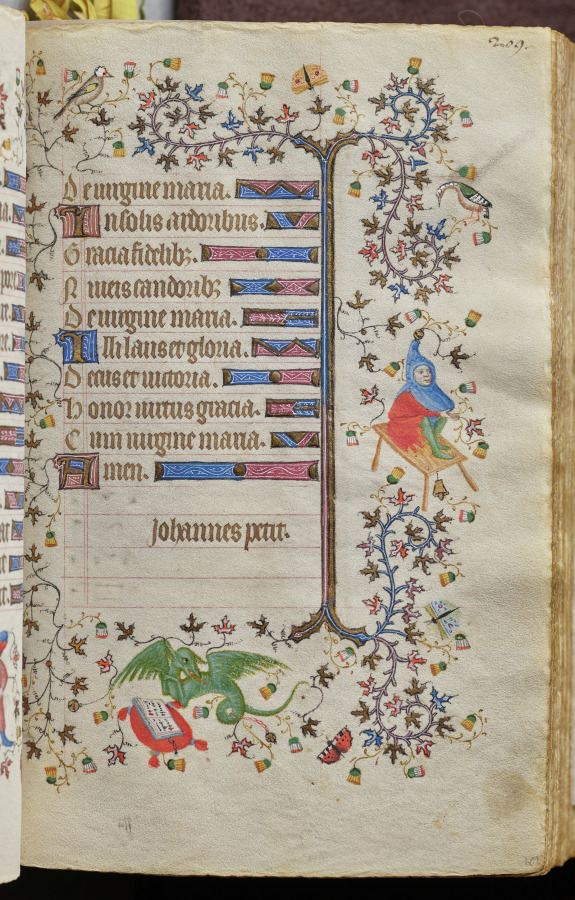 209.
De uirgine maria.
In solis ardoribus.
Gracia fidelibz.
Niueis candoribz
De uirgine maria.
Illi laus et gloria.
Decus et uictoria.
Honor uirtus gracia.
Cum uirgine maria.
Amen.
Johannes petit.